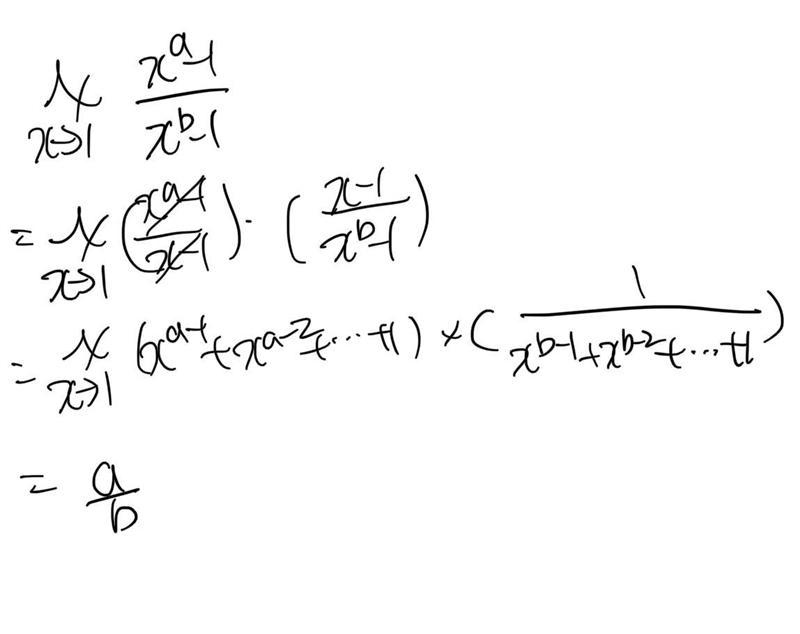 lim x→1 (x^a-1)/(x^b-1)
= lim x→1 ((x^a-1)/(x-1)) · ((x-1)/(x^b-1))
= lim x→1 (x^{a-1}+x^{a-2}+...+1) × (1/(x^{b-1}+x^{b-2}+...+1))
= a/b